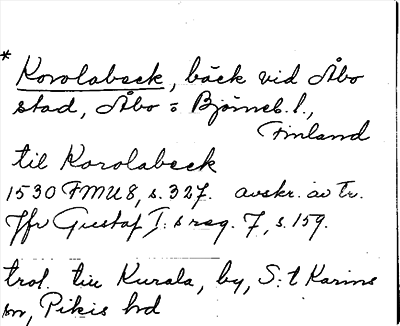 * Korolabeck, bäck vid Åbo
stad, Åbo o Björneb. l.,
Finland
til Korolabeck
1530 FMU 8, s. 327. avskr. av Tr.
Jfr Gustaf I:s reg. 7, s. 159.
trol. till Kurala, by, S:t Karins
sn, Pikis hd